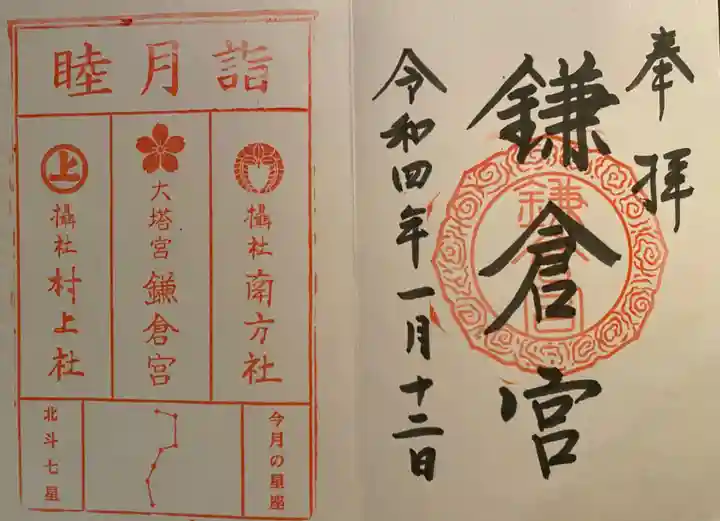 奉拝
鎌倉宮
令和四年一月十二日
鎌倉宮
詣月睦
攝社 南方社
大塔宮 鎌倉宮
上
攝社 村上社
今月の星座
北斗七星